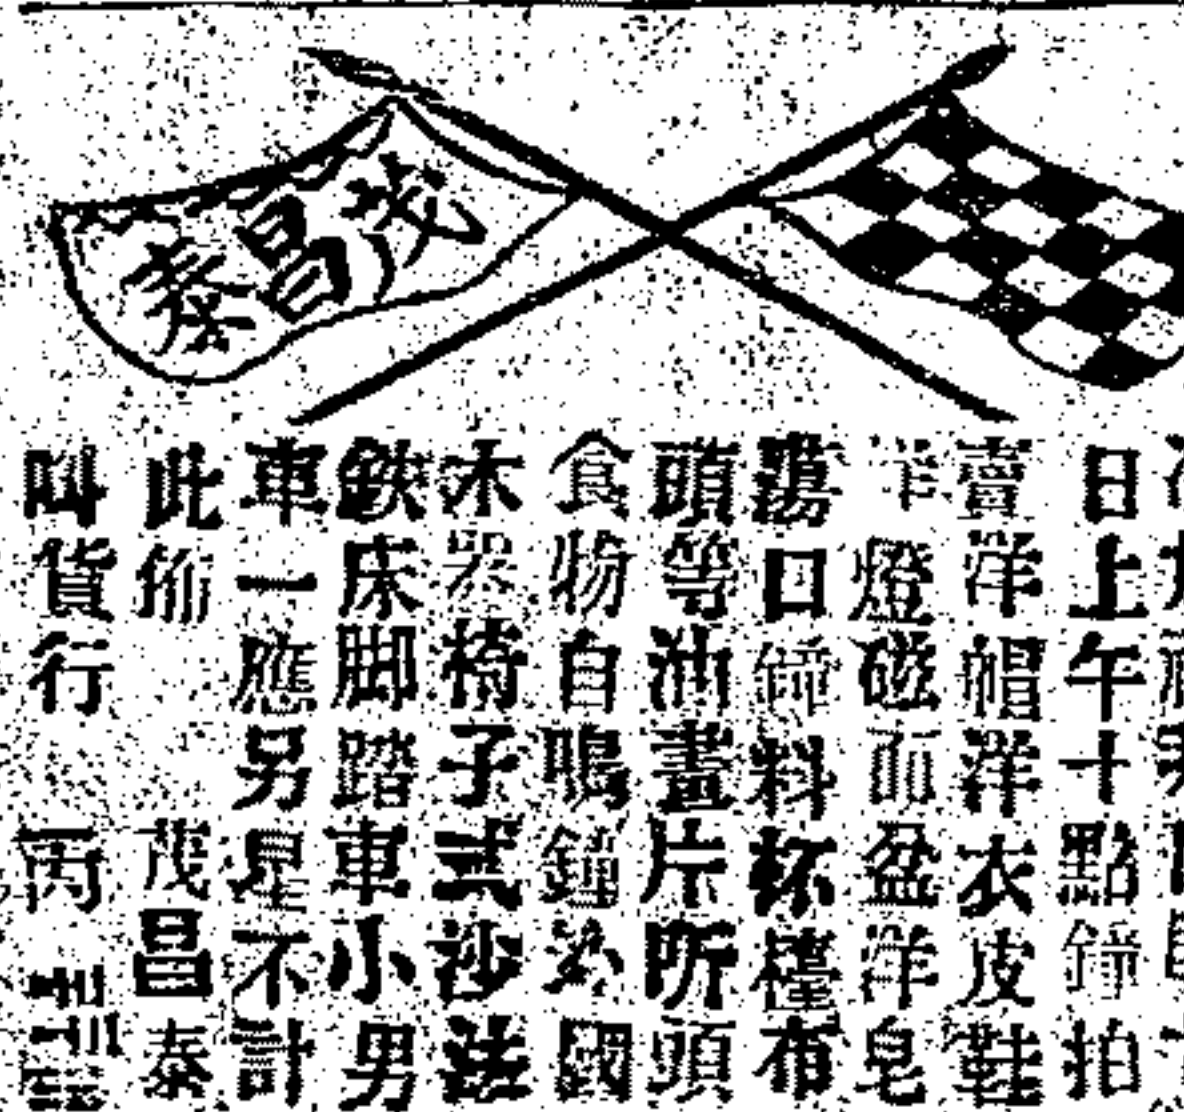 茂昌泰
日上午十點鐘拍
賣洋帽洋衣皮鞋
燈磁面盆洋皂
口鐘料杯檯布
頭等油畫片听頭
食物自鳴鐘外國
木器椅子式沙法
鉄床脚踏車小男
車一應另星不計
此佈 茂昌泰
叫貨行